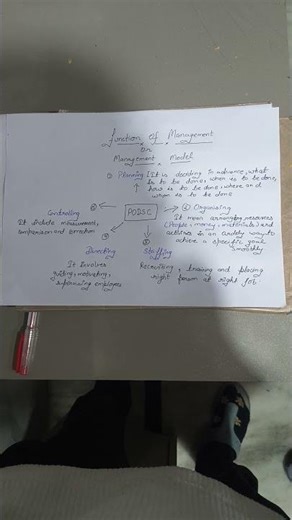 Function Of Management
Or
Management Model
① Planning :- It is deciding in advance, what
is to be done, when is to be done,
how is to be done, where and
whom is to be done
② Organising
It mean arranging resources
(People, money, materials) and
activities in an orderly way to
achieve a specific goal
smoothly
PODSC
Controlling
It include measurement,
comparison and correction
Directing
It Involves
guiding, motivating,
supervising employees
Staffing
Recruiting, training and placing
right person at right job